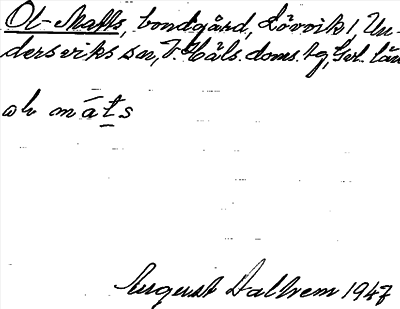 Ol-Matts, bondgård, Lörvik, Un-
dersviks sn, V. Häls. doms. tg, Gävl. län
oh máts
August Dalhem 1947